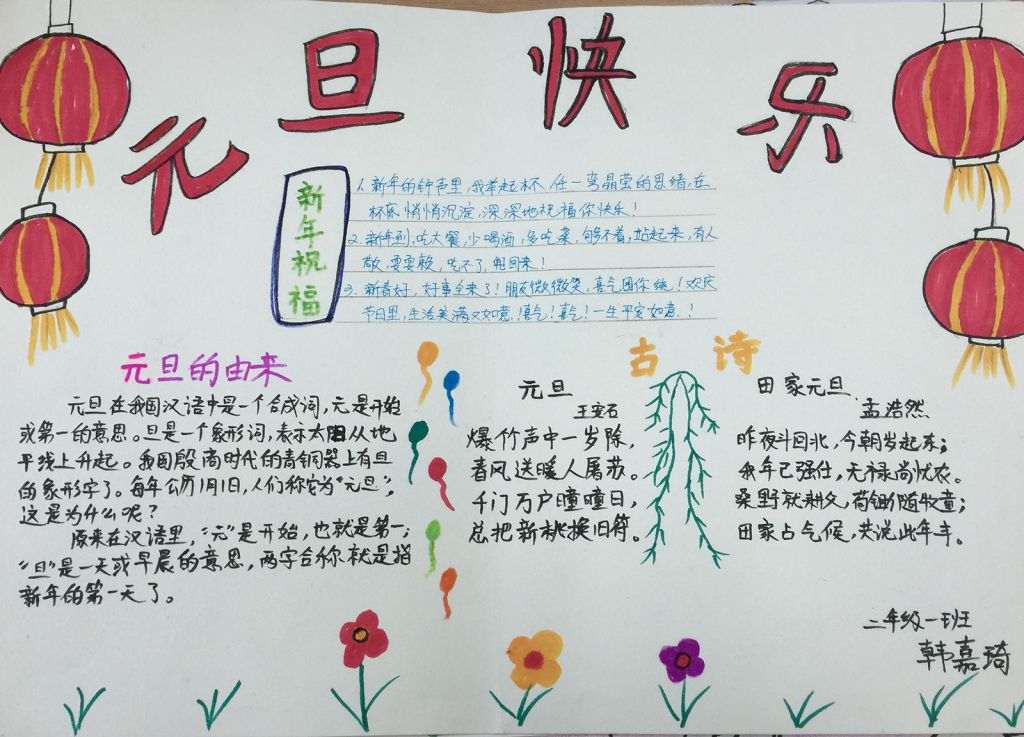 元旦快乐
新年祝福
1. 新年的钟声里,我举起杯,任一弯晶莹的思绪,在
杯底悄悄沉淀,深深地祝福你快乐!
2. 新年到,吃大餐,少喝酒,多吃菜,够不着,站起来,有人
敬,耍耍赖,吃不了,兜回来!
3. 新春好,好事全来了!朋友微微笑,喜气围你绕!欢庆
节日里,生活美满又如意!喜气!喜气!一生平安如意!
元旦的由来
元旦在我国汉语中是一个合成词,元是开始
或第一的意思。旦是一个象形词,表示太阳从地
平线上升起。我国殷商时代的青铜器上有旦
的象形字了。每年公历1月1日,人们称它为“元旦”,
这是为什么呢?
原来在汉语里,“元”是开始,也就是第一;
“旦”是一天或早晨的意思,两字合称就是指
新年的第一天了。
古诗
元旦
王安石
爆竹声中一岁除,
春风送暖入屠苏。
千门万户曈曈日,
总把新桃换旧符。
田家元旦
孟浩然
昨夜斗回北,今朝岁起东;
我年已强仕,无禄尚忧农。
桑野就耕父,荷锄随牧童;
田家占气候,共说此年丰。
二年级一班
韩嘉琦